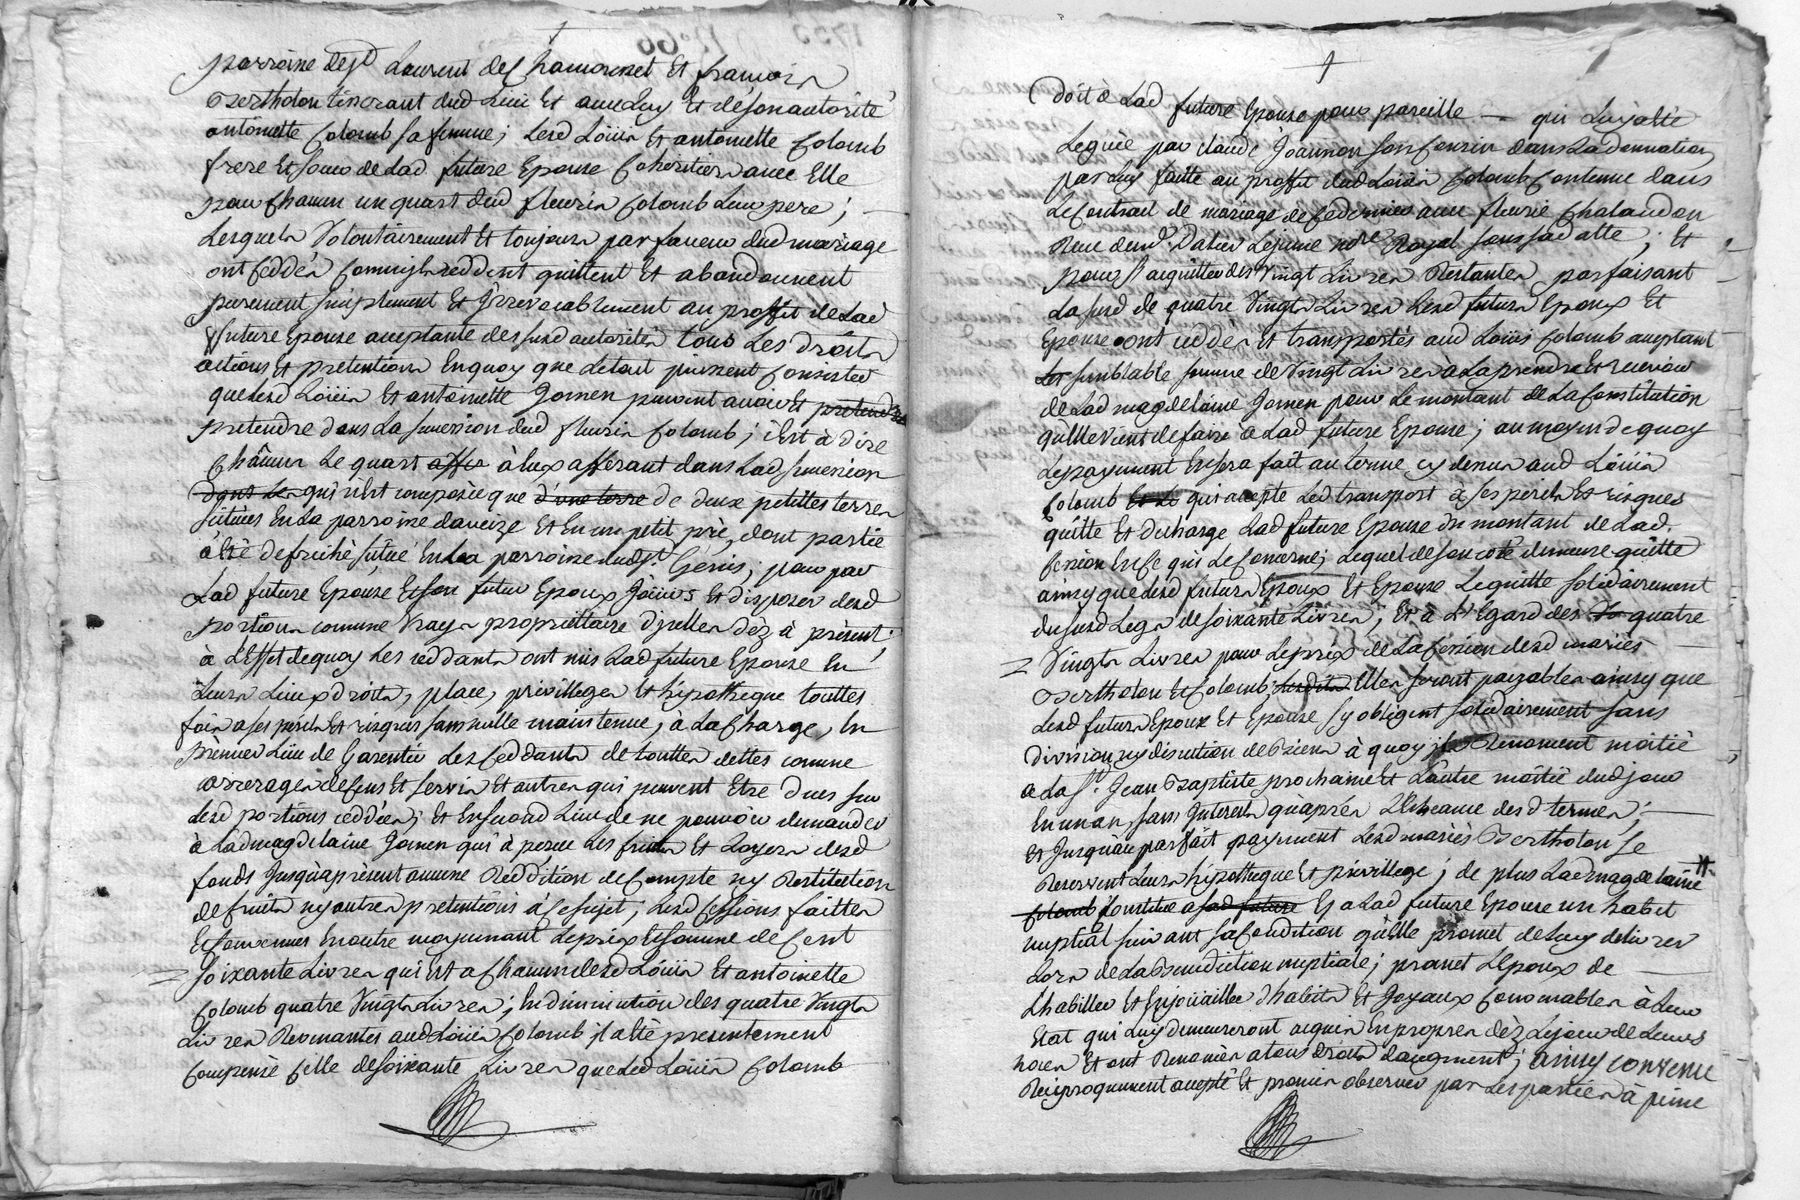 parroisse de St Laurent de Chamousset Et francois
Bertholon tisserant dud lieu Et avec luy Et de son autorité
antoinette Colomb sa femme; lesd Loüis Et antoinette Colomb
frere Et soeur de Lad future Epouse Coheritiers avec Elle
pour Chacun un quart dud fleuris Colomb Leur pere;
Lesquels Volontairement Et toujours par faveur dud mariage
ont ceddés comme ils ceddent quittent Et abandonnent
purement simplement Et Irrevocablement au proffit de Lad
future Epouse acceptante des susd autorités tous Les droits
actions Et pretentions En quoy que le tout puissent Consister
que lesd Loüis Et antoinette Jomen peuvent avoir Et pretendre
pretendre dans La succession dud fleuris Colomb; c'Est à dire
Chacun Le quart affer à Eux afferant dans Lad succession
dont Les qui n'Est composée que d'une terre de deux petittes terres
situées En La parroisse daveize Et En un petit pré, dont partie
à Eté defriché située En La parroisse dud St. Génis; pour par
Lad future Epouse Et son futur Epoux Joüir Et disposer desd
portions comme Vrays proprietaires d'jcelles dèz à présent;
à L'Effet dequoy Les ceddants ont mis Lad future Epouse En
Leurs Lieux droits, place, privilleges Et hipotheque touttes
fois a ses périls Et risques sans nulle maintenue, à La Charge, En
prémier Lieu de Garentir Les Ceddants de touttes dettes comme
arrerages de Cens Et servis Et autres qui peuvent Etre dues sur
lesd portions ceddées; Et En second Lieu de ne pouvoir demander
à Lad magdelaine Jomen qui à perçu Les fruits Et Loyers desd
fonds Jusqu'aprésent aucune Reddition de Compte ny Restitution
de fruits ny autres pretentions à ce sujet; Lesd Cessions faittes
Et Convenues En outre moyennant Le prix Et somme de Cent
soixante Livres qui Est a Chacun desd Loüis Et antoinette
Colomb quatre Vingts Livres; En diminution des quatre Vingts
Livres Revenantes aud Loüis Colomb jl a Eté presentement
Compensé Celle de soixante Livres que Led Loüis Colomb
doit à Lad future Epouse pour pareille qui Luy a Eté
Leguée par claude Joannon son Cousin dans La donnation
par Luy faitte au proffit dud Loüis Colomb Contenue dans
Le Contrait de mariage de Ce dernier avec fleurie Chalandon
Receu de Dalier Lejeune nore Royal sous sad datte; Et
pour S'acquitter des Vingt Livres Restantes parfaisant
La susd de quatre Vingts Livres Lesd futurs Epoux Et
Epouse ont ceddés Et transportés aud Loüis Colomb acceptant
Les semblable somme de Vingt Livres à La prendre Et recevoir
de Lad magdelaine Jomen pour Le montant de La Constitution
qu'Elle Vient de faire à Lad future Epouse; au moyen de quoy
Le payement En sera fait au terme cy dessus aud Loüis
Colomb Et Le qui accepte Led transport à ses périls Et risques
quitte Et décharge Lad future Epouse du montant de Lad.
Cession En Ce qui Le Concerne; Lequel de son coté demeure quitte
ainsy que lesd futurs Epoux Et Epouse Le quitte solidairement
du susd Legs de soixante Livres; Et à L'Egard des quatre
Vingts Livres pour Le prix de La Cession desd mariés
Bertholon Et Colomb; Elles seront payables ainsy que
lesd futurs Epoux Et Epouse s'y obligent solidairement sans
division ny discution de biens à quoy jls Renoncent moitié
a La St. Jean Baptiste prochaine Et L'autre moitié dud jour
En un an, sans Interets qu'aprés L'Echeance desd termes;
Et Jusqu'au parfait payement Lesd mariés Bertholon se
Reservent Leurs hipotheque Et privillege; de plus Lad magdelaine
Colomb Constitue a sad future Et a Lad future Epouse un habit
nuptial suivant sa Condition qu'Elle promet de Luy delivrer
Lors de La Benediction nuptiale; promet L'Epoux de
L'habiller Et Enjoüailler d'habits Et Joyaux Convenables à Leur
Etat qui Luy demeureront acquis En propres dèz Le jour de Leurs
noces Et ont Renoncés a tous droits d'augment; ainsy convenu
Reciproquement accepté Et promis observer par Les parties à peine